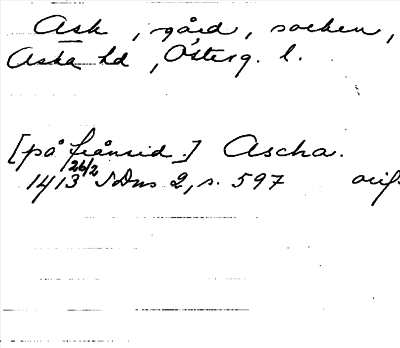 Ask, gård, socken,
Aska hd, Österg. l.
[på frånsid.] Ascha.
1413 26/2 SDns 2, s. 597